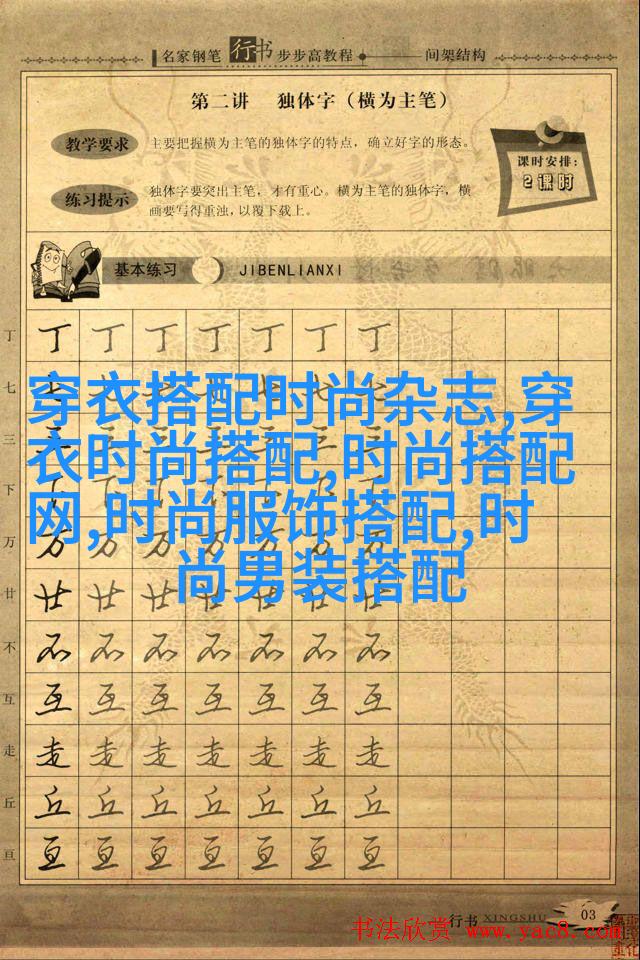 名家钢笔 行书 步步高教程 间架结构
第二讲 独体字（横为主笔）
教学要求 主要把握横为主笔的独体字的特点，确立好字的形态。
课时安排：
2课时
练习提示 独体字要突出主笔，才有重心。横为主笔的独体字，横
画要写得重浊，以覆下载上。
基本练习 JIBENLIANXI
丁 丁 丁 丁 丁 丁 丁 丁
七
穿衣搭配时尚杂志,穿
三
衣时尚搭配,时尚搭配
下
网,时尚服饰搭配,时
万 万 万 万 万 万 万 万
尚男装搭配
廿 廿 廿 廿 廿 廿 廿 廿
不 不 不 不 不 不 不 不
互 互 互 互 互 互 互 互
走 走 走 走 走 走 走 走
丘 丘 丘 丘 丘 丘 丘 丘
亘 亘 亘 亘 亘 亘 亘 亘
行书 XINGSHU 03
书法欣赏 www.yac8.com